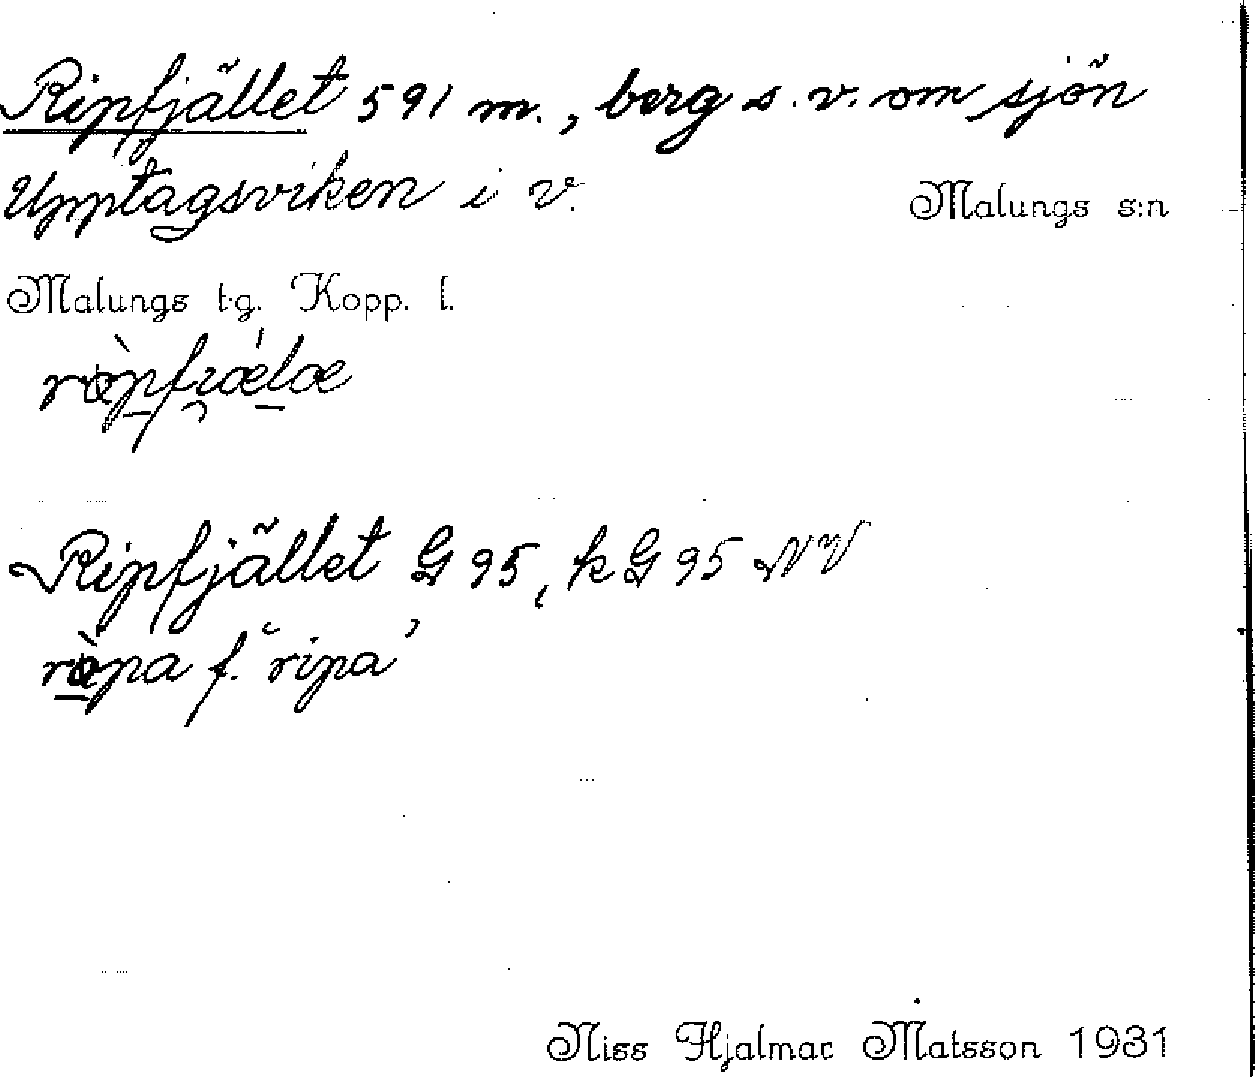 Ripfjället 591 m., berg s.v. om sjön
Upptagsviken i v. Malungs s:n
Malungs tg. Kopp. l.
Ripfjället G 95, k G 95 NV
ròpa f. "ripa"
Niss Hjalmar Matsson 1931